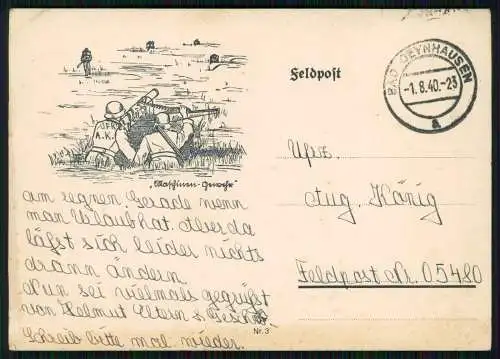 Feldpost
BAD OEYNHAUSEN
-1.8.40.-23
a
"Maschinen-Gewehr"
am regnen. Gerade wenn
man Urlaub hat. Aber da
läßt sich leider nichts
drann ändern.
Nun sei vielmals gegrüßt
von Helmut Eltern &
Schreib bitte mal wieder.
Nr. 3
Uffz.
Aug. König
Feldpost Nr. 05480